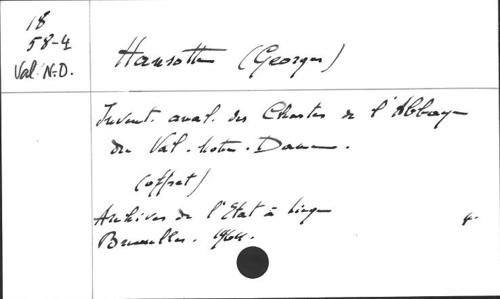 18
58-4
Val. N.-D.
Hansotte (Georges)
Invent. anal. des Chartes de l'Abbaye
du Val-Notre-Dame.
(offset)
Archives de l'Etat à Liège
Bruxelles. 1964.